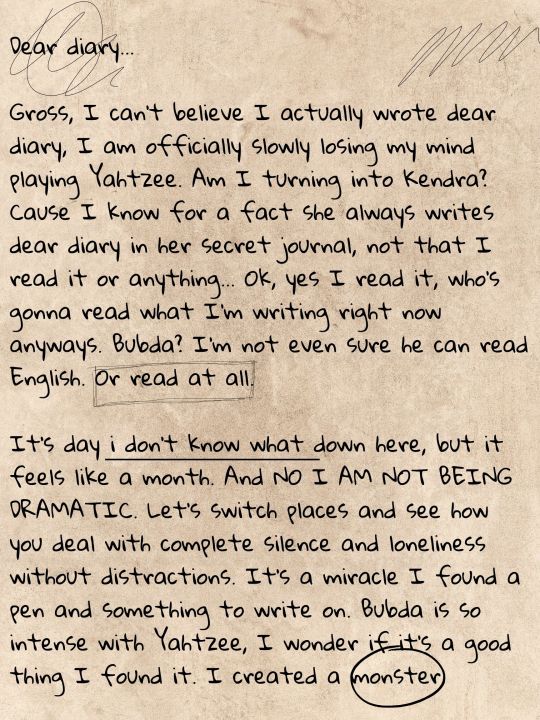 Dear diary...
Gross, I can't believe I actually wrote dear
diary, I am officially slowly losing my mind
playing Yahtzee. Am I turning into Kendra?
Cause I know for a fact she always writes
dear diary in her secret journal, not that I
read it or anything... Ok, yes I read it, who's
gonna read what I'm writing right now
anyways. Bubda? I'm not even sure he can read
English. Or read at all.
It's day i don't know what down here, but it
feels like a month. And NO I AM NOT BEING
DRAMATIC. Let's switch places and see how
you deal with complete silence and loneliness
without distractions. It's a miracle I found a
pen and something to write on. Bubda is so
intense with Yahtzee, I wonder if it's a good
thing I found it. I created a monster